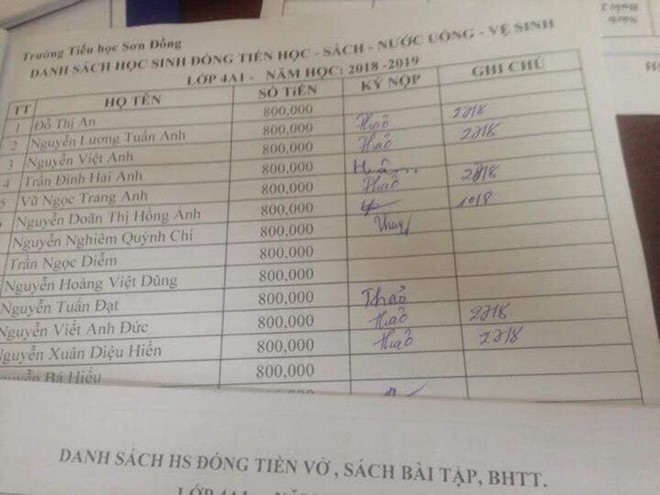 Trường Tiểu học Sơn Đồng
DANH SÁCH HỌC SINH ĐÓNG TIỀN HỌC - SÁCH - NƯỚC UỐNG - VỆ SINH
LỚP 4A1 - NĂM HỌC: 2018 -2019
TT HỌ TÊN SỐ TIỀN KÝ NỘP GHI CHÚ
1 Đỗ Thị An 800,000 Thảo 27/8
2 Nguyễn Lương Tuấn Anh 800,000 Thảo 27/8
3 Nguyễn Việt Anh 800,000
4 Trần Đình Hải Anh 800,000 Thảo 28/8
5 Vũ Ngọc Trang Anh 800,000
Nguyễn Doãn Thị Hồng Anh 800,000 Thuỷ
Nguyễn Nghiêm Quỳnh Chi 800,000
Trần Ngọc Diễm 800,000
Nguyễn Hoàng Việt Dũng 800,000
Nguyễn Tuấn Đạt 800,000 Thảo
Nguyễn Viết Anh Đức 800,000 Thảo 27/8
Nguyễn Xuân Diệu Hiền 800,000 Thảo 27/8
Nguyễn Bá Hiếu 800,000
DANH SÁCH HS ĐÓNG TIỀN VỞ , SÁCH BÀI TẬP, BHTT.